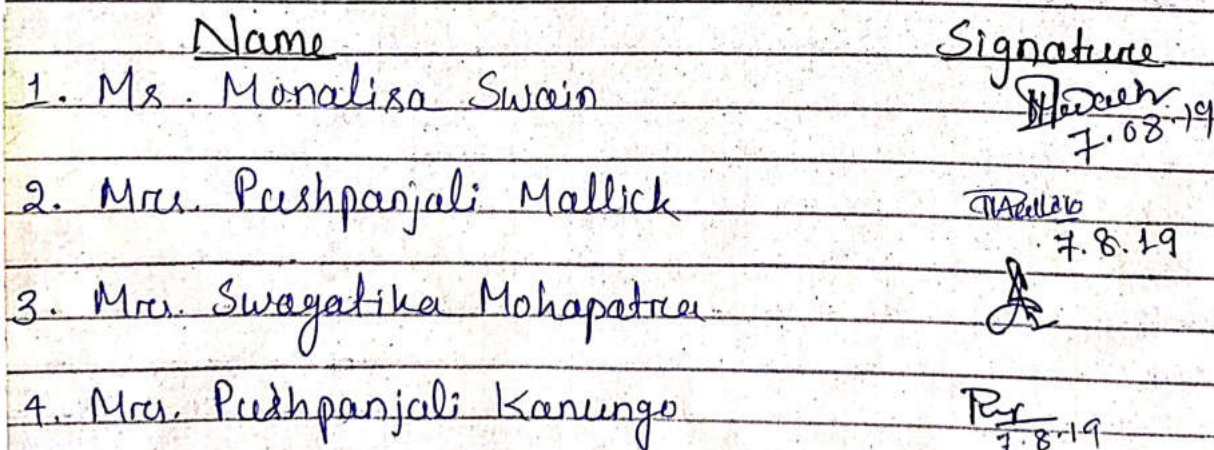 Name Signature
1. Ms. Monalisa Swain
7.08.19
2. Mrs. Pushpanjali Mallick
7.8.19
3. Mrs. Swagatika Mohapatra
4. Mrs. Pushpanjali Kanungo
7.8.19